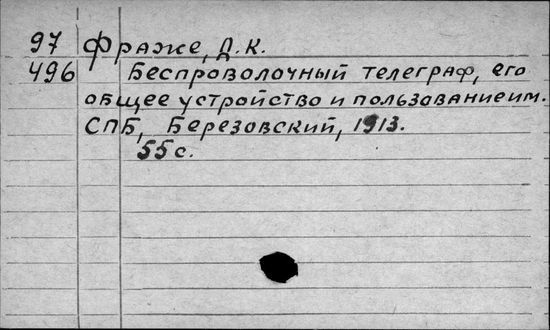 97 Фраже, Д.К.
496 Беспроволочный телеграф, его
общее устройство и пользование им.
СПБ, Березовский, 1913.
55 с.